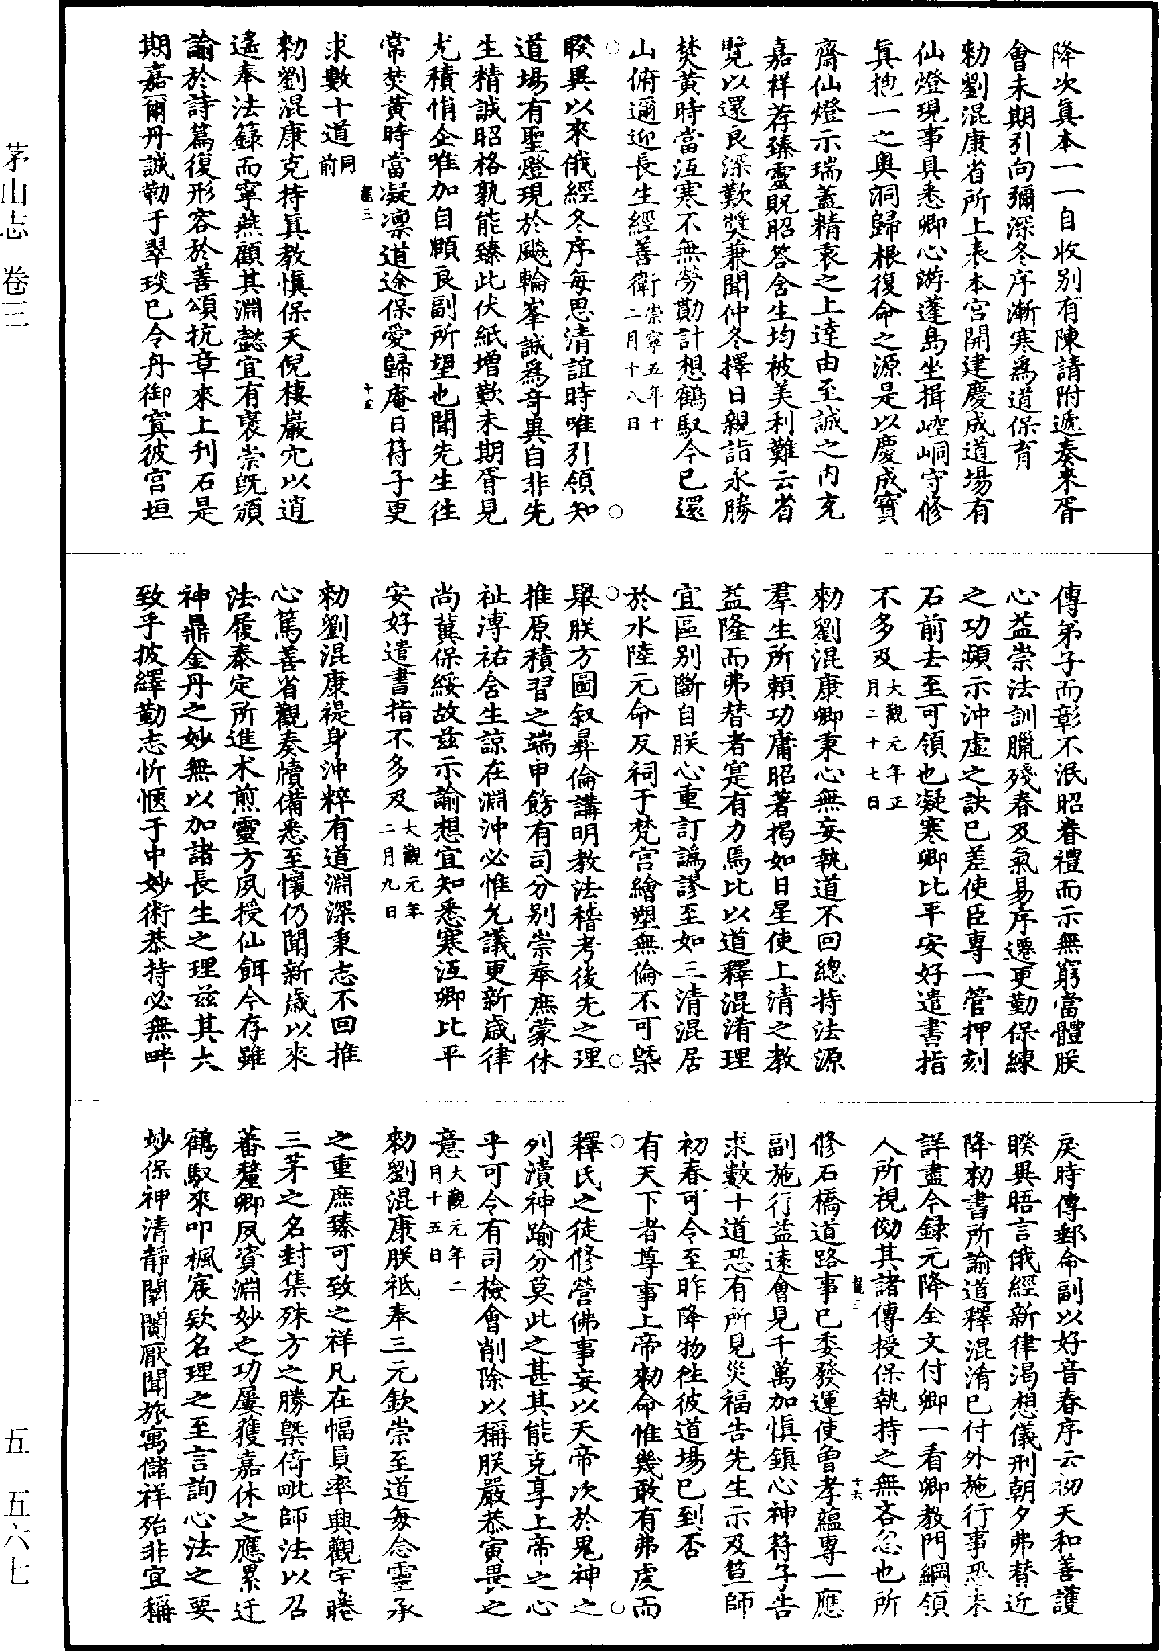 降次真本一一自收別有陳請附遞奏來胥
會未期引向彌深冬序漸寒爲道保育
勑劉混康省所上表本宮開建慶成道場有
仙燈現事具悉卿心游蓬島坐揖崆峒守修
真抱一之奧洞歸根復命之源是以慶成寶
齋仙燈示瑞蓋精衷之上達由至誠之内充
嘉祥荐臻靈貺昭答含生均被美利難云省
覽以還良深歎奬兼聞仲冬擇日親詣永勝
焚黃時當沍寒不無勞勩計想鶴馭今已還
山俯邇迎長生經善衛崇寧五年十二月十八日
睽異以來俄經冬序每思清誼時唯引領知
道場有聖燈現於飈輪峯誠爲奇異自非先
生精誠昭格孰能臻此伏紙增歎未期胥見
尤積悁企唯加自頤良副所望也聞先生往
常焚黃時當凝凛道途保愛歸庵日符子更
求數十道同前
勑劉混康克持真教慎保天倪棲巖宂以逍
遙奉法籙而寧燕顧其淵懿宜有褒崇旣頒
諭於詩篇復形容於善頌抗章來上刋石是
期嘉爾丹誠勒于翠琰已令丹御寘彼宮垣
傳弟子而彰不泯昭眷禮而示無窮當體朕
心益崇法訓臘殘春及氣易序遷更勤保練
之功頻示沖虛之訣已差使臣專一管押刻
石前去至可領也凝寒卿比平安好遣書指
不多及大觀元年正月二十七日
勑劉混康卿秉心無妄執道不回總持法源
羣生所賴功庸昭著揭如日星使上清之教
益隆而弗替者寔有力焉比以道釋混淆理
宜區別斷自朕心重訂譌謬至如三清混居
於水陸元命反祠于梵宮繪塑無倫不可槩
舉朕方圖叙彛倫講明教法稽考後先之理
推原積習之端申飭有司分別崇奉庶蒙休
祉溥祐含生諒在淵沖必惟允議更新歲律
尚冀保綏故兹示諭想宜知悉寒沍卿比平
安好遣書指不多及大觀元年二月九日
勑劉混康禔身沖粹有道淵深秉志不回推
心篤善省觀奏牘備悉至懷仍聞新歲以來
法履泰定所進术煎靈方夙授仙餌今存雖
神鼎金丹之妙無以加諸長生之理兹其六
致乎披繹勤志忻愜于中妙術恭持必無畔
戾時傳郵命副以好音春序云初天和善護
睽異晤言俄經新律渴想儀刑朝夕弗替近
降勑書所諭道釋混淆已付外施行事恐未
詳盡今録元降全文付卿一看卿教門綱領
人所視傚其諸傳授保執持之無吝怠也所
修石橋道路事已委發運使曾孝蘊專一應
副施行益遠會見千萬加慎鎮心神符子告
求數十道恐有所見災福告先生示及笪師
初春可令至昨降物往彼道場已到否
有天下者尊事上帝勑命惟幾敢有弗虔而
釋氏之徒修營佛事妄以天帝次於鬼神之
列瀆神踰分莫此之甚其能克享上帝之心
乎可令有司檢會削除以稱朕嚴恭寅畏之
意大觀元年二月十五日
勑劉混康朕祗奉三元欽崇至道每念靈承
之重庶臻可致之祥凡在幅員率興觀宇睠
三茅之名封集殊方之勝槩倚毗師法以召
蕃釐卿夙資淵妙之功屢獲嘉休之應累迂
鶴馭來叩楓宸欵名理之至言詢心法之要
妙保神清靜闤闠厭聞旅寓儲祥殆非宜稱
茅山志　卷三
五　五六七
龍三
十五
龍三
十六